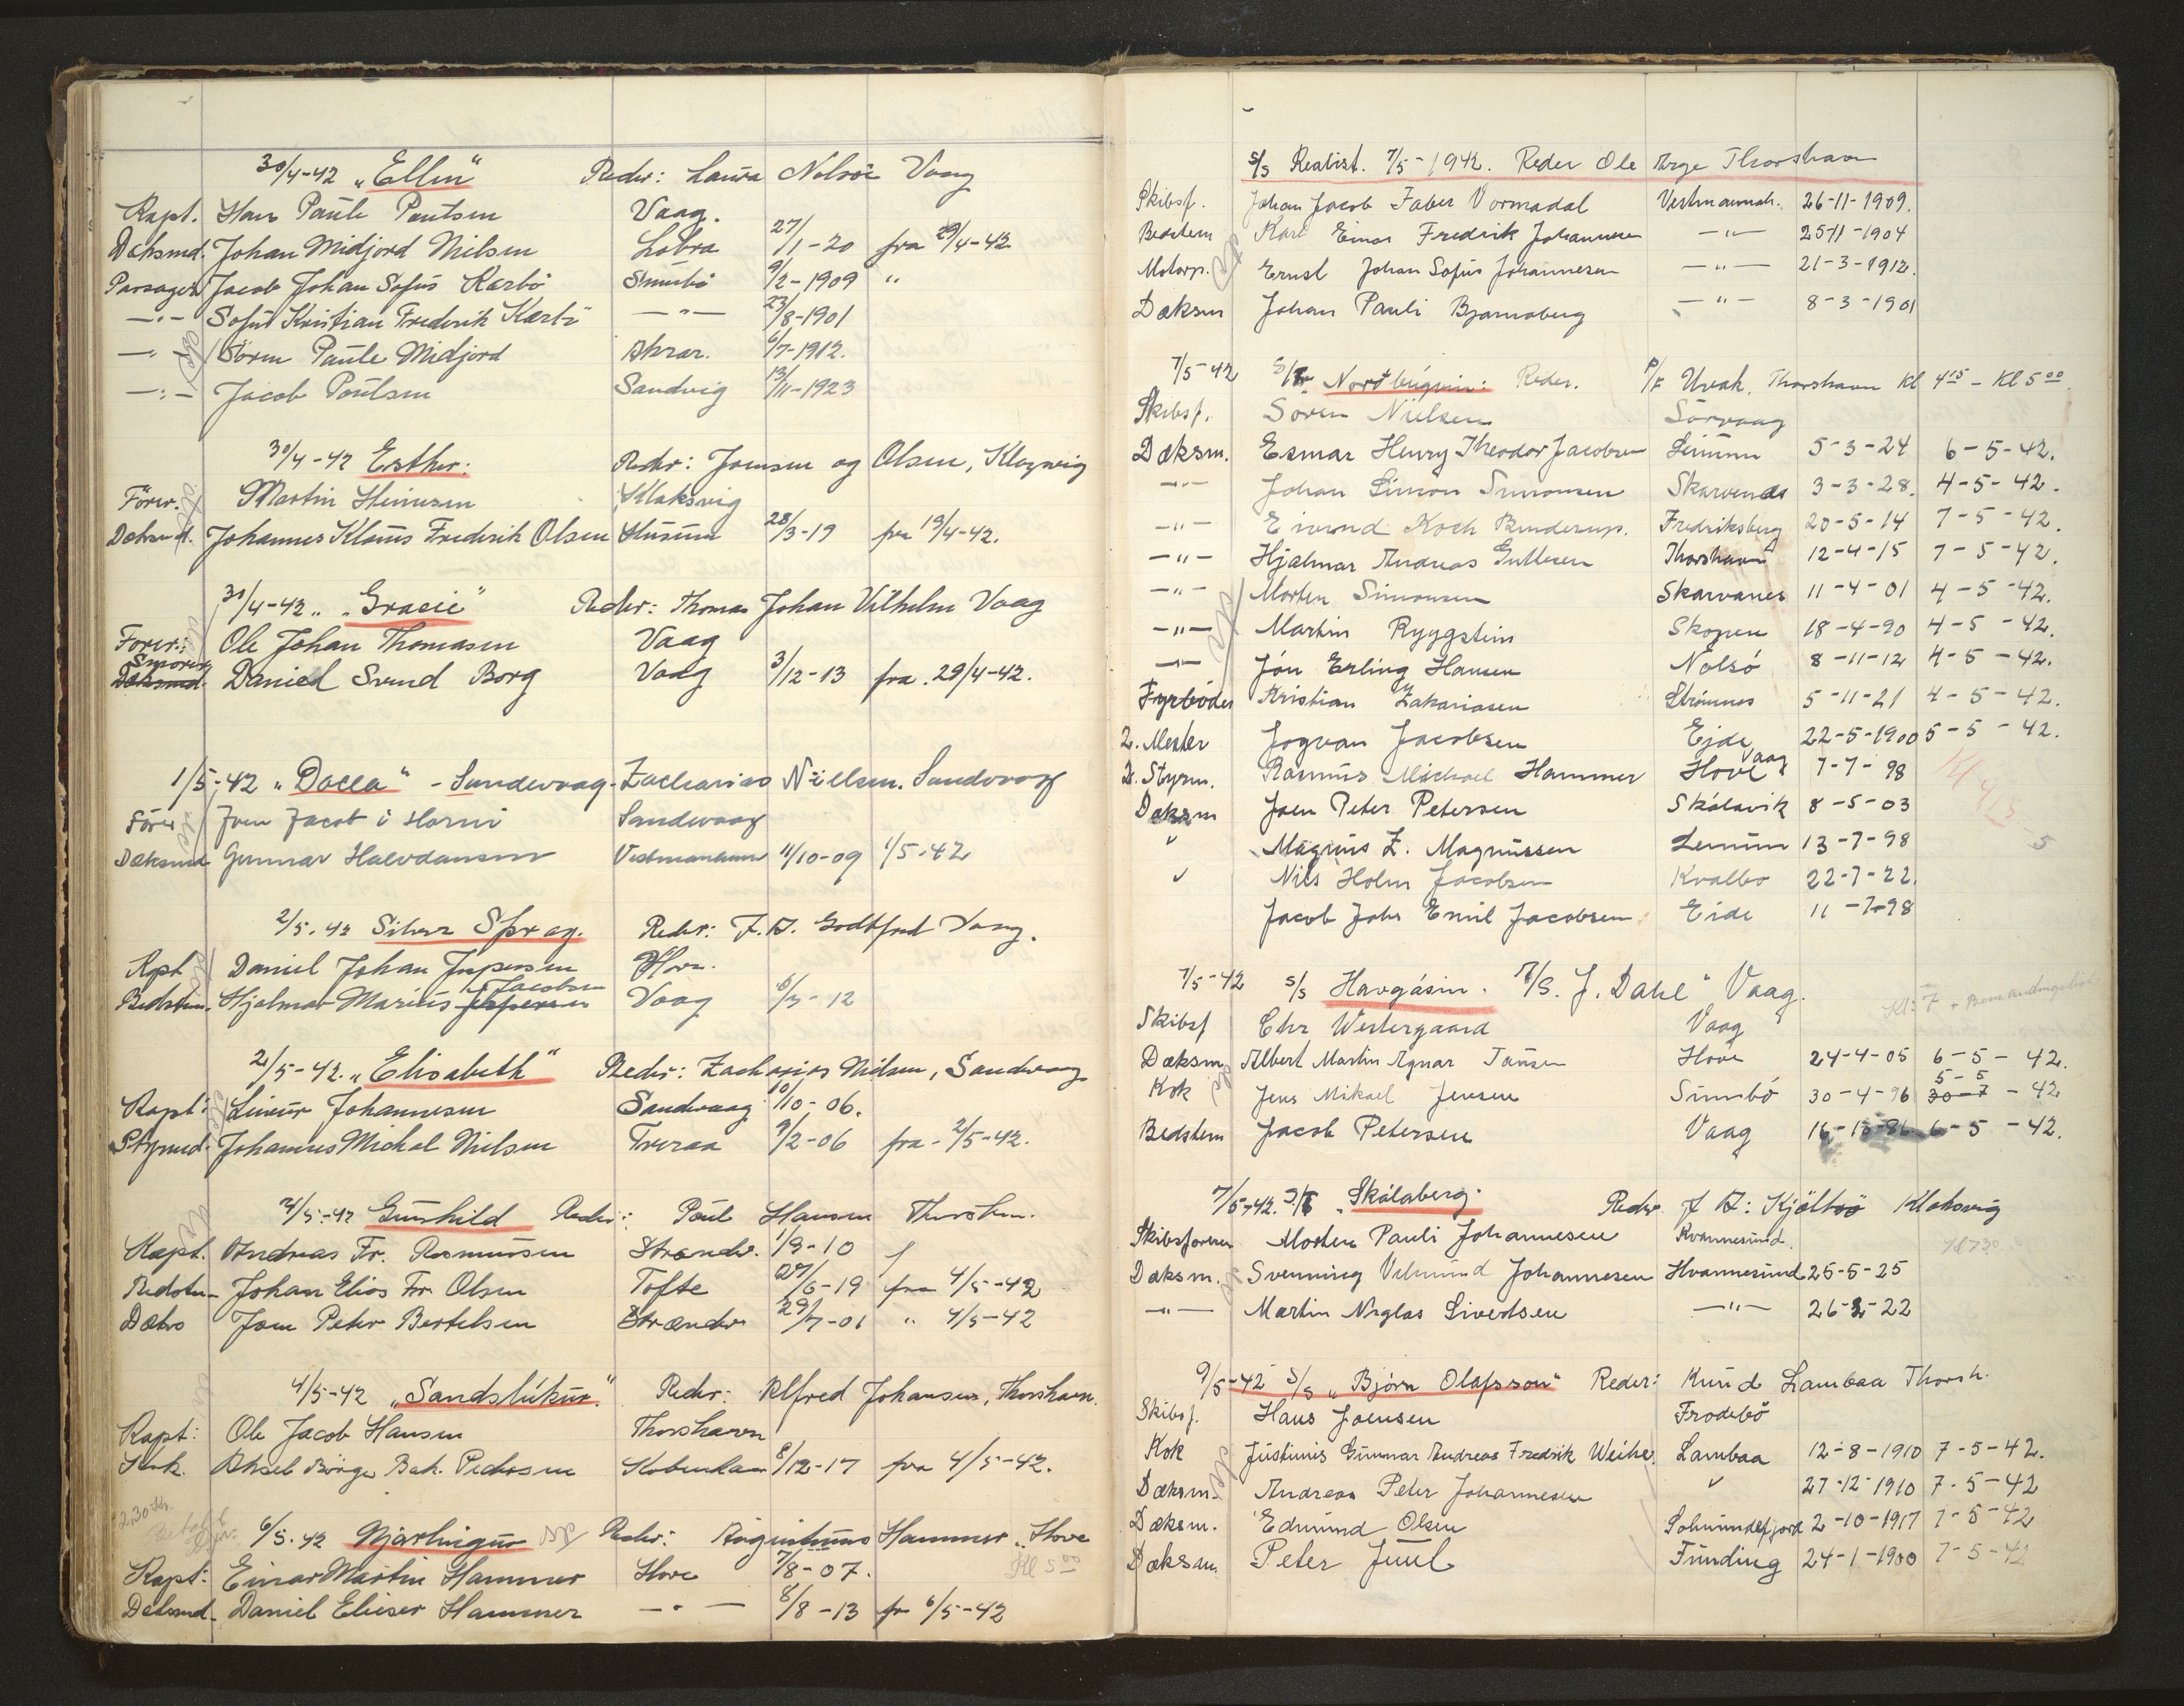 30/4-42 „Ellen“ Reder: Laura Nolsöe Vaag
Kapt. Hans Paule Poulsen Vaag.
Dæksmd. Johan Midjord Nielsen Lobra 27/1-20 fra 29/4-42
Passager Jacob Johan Sofus Kærbö Sumbö 9/2-1909 "
—"— Sofus Kristian Frederik Kærbö —"— 23/8-1901
—"— Sören Paule Midjord Akrar. 6/7-1912.
—"— Jacob Poulsen Sandvig 13/11-1923
30/4-42 Esther. Reder: Joensen og Olsen, Klagsvig
Förer. Martin Heinesen Klaksvig
Dæksmd. Johannes Klæus Frederik Olsen Husum 28/3-19 fra 19/4-42.
30/4-42 „Gracie“ Reder: Thomas Johan Vilhelm Vaag
Förer: Ole Johan Thomasen Vaag
Smörer Dæksmd. Daniel Svend Borg Vaag 3/12-13 fra. 29/4-42.
1/5-42 „Docea“ - Sandevaag. Zacharias Nielsen. Sandvaag
Förer Joen Jacob i Horni Sandevaag
Dæksmd Gunnar Halvdansen Vestmanhavn 11/10-09 1/5-42
2/5.42 Silver Spray. Reder: F. D. Godtfred Vaag.
Kpt Daniel Johan Jespersen Hove.
Bedstm. Hjalmar Marius Jespersen Jacobsen Vaag 6/7-12
2/5-42. „Elisabeth“ Reder: Zacharias Nielsen, Sandvaag
Kapt: Lineur Johannesen Sandvaag 10/10-06.
Strymd. Johannes Michal Nielsen Tveraa 9/2-06 fra - 2/5-42.
4/5-42 Gunhild Reder: Poul Hansen Thorshn.
Kapt. Andreas Fr. Rasmussen Strænder. 1/9-10
Bedstm. Johan Elias Fr. Olsen Tofte 27/6-19 fra 4/5-42
Dæks Joen Peter Bertelsen Strænder 29/7-01 " 4/5-42
4/5-42 „Sandshúkur.“ Reder: Alfred Johansen, Thorshavn.
Kapt: Ole Jacob Hansen Thorshavn
Kok. Aksel Börge Bak. Pedersen Kobenhavn 8/12-17 fra 4/5-42.
6/5.42 Njarhingur Reder: Augustinus Hammer, Hove
Kl 5 00
Kapt: Einar Martin Hammer Hove 7/8-07.
Dæksmd. Daniel Elieser Hammer —"— 8/8-13 fr 6/5-42
s/s Realist. 7/5-1942. Reder Ole Arge Thorshavn
Skibsf. Johan Jacob Faber Vormadal Vestmannah. 26-11-1909.
Bedstem Karl Einar Fredrik Johannesen —"— 25-11-1904
Motorp. Ernst Johan Sofus Johannesen —"— 21-3-1912.
Dæksm Johan Pauli Bjarnaberg —"— 8-3-1901
7/5-42 S/Tr Nordbúgvin: Reder. P/F Uvak, Thorshavn Kl 4 15 - Kl 5 00.
Skibsf. Sören Nielsen Sörvaag
Dæksm. Esmar Henry Theodor Jacobsen Leinum 5-3-24 6-5-42.
—"— Johan Simon Simonsen Skarvenæs 3-3-28. 4-5-42.
—"— Eivind Koch Binderup. Fredriksberg 20-5-14 7-5-42.
—"— Hjalmar Andreas Guttesen Thorshavn 12-4-15 7-5-42.
—"— Morten Simonsen Skarvanes 11-4-01 4-5-42.
—"— Martin Ryggstein Skopen 18-4-20 4-5-42.
—"— Jón Erling Hansen Nolsó 8-11-12 4-5-42.
Fyrbóder Kristian Zakariasen Strömnes 5-11-21 4-5-42.
2. Mester Jogvan Jacobsen Ejde 22-5-1900 5-5-42.
2. Styrm. Rasmus Michael Hammer Hove Vaag 7-7-98
Dæksm Joen Peter Petersen Skálavik 8-5-03
" Magnus Z. Magnussen Leinum 13-7-98 5
" Nils Holm Jacobsen Kvalbo 22-7-22.
Jacob Johs Emil Jacobsen Eide 11-7-98
7/5-42 s/s Havgásin. P/S. J. Dahl" Vaag.
Skibsf Chr Westergaard Vaag
Dæksm. Albert Martin Agnar Jansen Hove 24-4-05 6-5-42.
Kok Jens Mikael Jensen Sumbö 30-4-96 30-7 5-5-42
Bedstem Jacob Petersen Vaag 16-13-86 6-5-42.
7/5-42. S/T „Skálaberg. Reder. J F: Kjölbro Klaksvig
Skibsförer Morten Pauli Johannesen Kvannesund.
Kl 7 30
Dæksm. Svenning Valmund Johannesen Hvannesund 25-5-25
—"— Martin Niglas Sivertsen —"— 26-2-22
9/5-42 S/s „Björn Olafsson“ Reder: Knud Lambaa Thorsh.
Skibsf. Hans Joensen Frodebö
Kok Justinus Gunnar Andreas Fredrik Weihe. Lambaa 12-8-1910 7-5-42.
Dæksm. Andreas Peter Johannesen " 27-12-1910 7-5-42
Dæksm. Edmund Olsen Solmundefjord 2-10-1917 7-5-42
Dæksm. Peter Juul Funding 24-1-1900 7-5-42